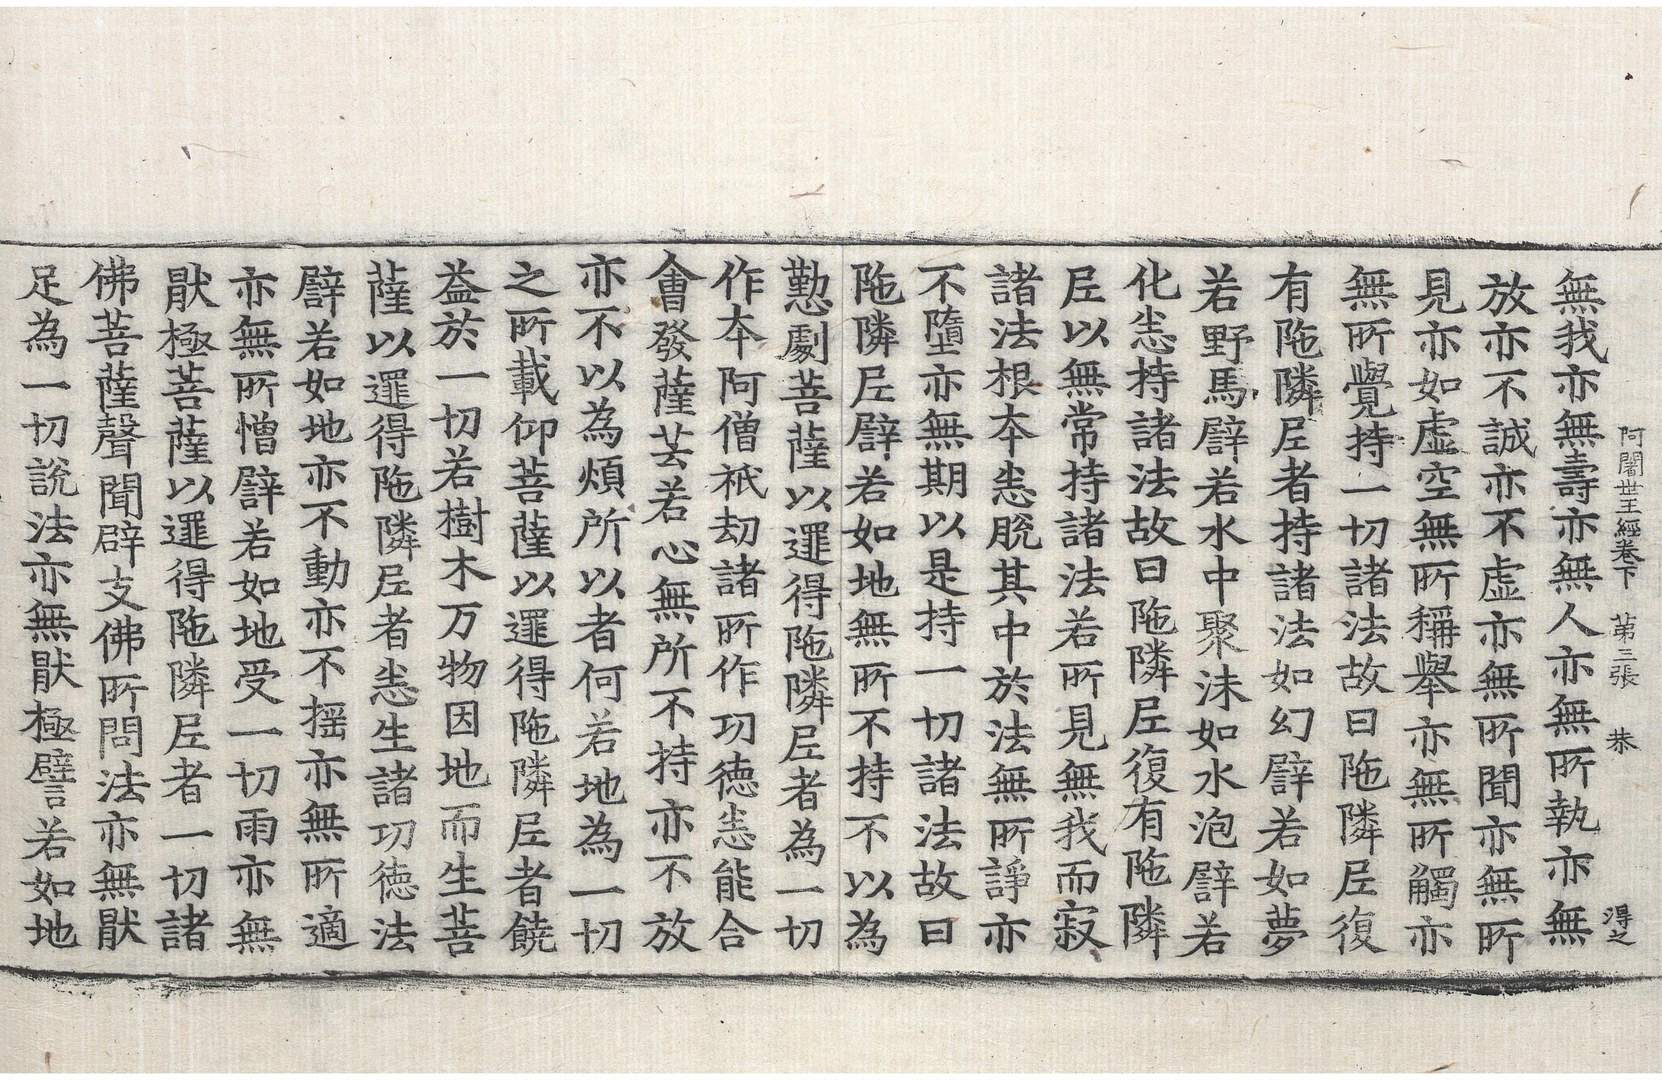 阿闍世王經卷下 第三張 恭 得之
無我亦無壽亦無人亦無所執亦無
放亦不誠亦不虛亦無所聞亦無所
見亦如虛空無所稱舉亦無所觸亦
無所覺持一切諸法故曰陁隣𡰱復
有陁隣𡰱者持諸法如幻譬若如夢
若野馬譬若水中聚沫如水泡譬若
化悉持諸法故曰陁隣𡰱復有陁隣
𡰱以無常持諸法若所見無我而寂
諸法根本悉脫其中於法無所諍亦
不墮亦無期以是持一切諸法故曰
陁隣𡰱譬若如地無所不持不以為
懃劇菩薩以逻得陁隣𡰱者為一切
作本阿僧祇劫諸所作功德悉能合
會發薩芸若心無所不持亦不放
亦不以為煩所以者何若地為一切
之所載仰菩薩以逻得陁隣𡰱者饒
益於一切若樹木万物因地而生菩
薩以逻得陁隣𡰱者悉生諸功德法
譬若如地亦不動亦不搖亦無所適
亦無所憎譬若如地受一切雨亦無
猒極菩薩以逻得陁隣𡰱者一切諸
佛菩薩聲聞辟支佛所問法亦無猒
足為一切說法亦無猒極譬若如地